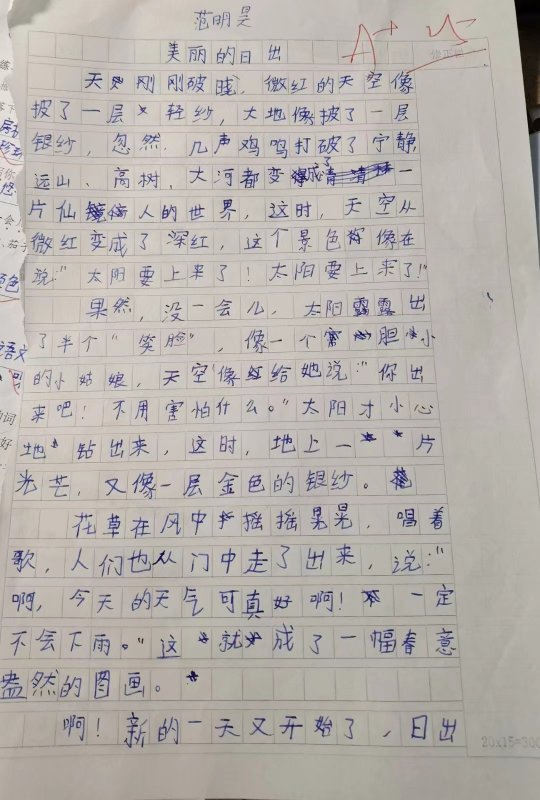 范明昊
美丽的日出
A+
天刚刚破晓，微红的天空像
披了一层轻纱，大地像披了一层
银纱，忽然，几声鸡鸣打破了宁静，
远山、高树，大河都变成了一
片仙人的世界，这时，天空从
微红变成了深红，这个景色好像在
说：“太阳要上来了！太阳要上来了！”
果然，没一会儿，太阳露露出
了半个“笑脸”，像一个胆小
的小姑娘，天空像给她说：“你出
来吧！不用害怕什么。”太阳才小心
地钻出来，这时，地上一片
光芒，又像一层金色的银纱。
花草在风中摇摇晃晃，唱着
歌，人们也从门中走了出来，说：“
啊，今天的天气可真好啊！一定
不会下雨。”这就成了一幅春意
盎然的图画。
啊！新的一天又开始了，日出
20x15=300